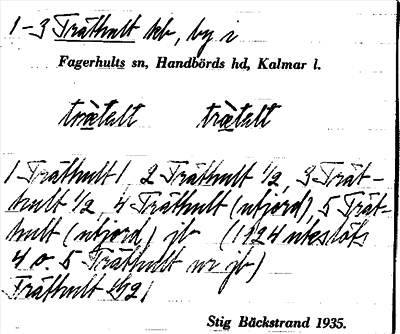 1-3 Träthult kb, by i
Fagerhults sn, Handbörds hd, Kalmar l.
trætelt trætelt
1 Träthult 1, 2 Träthult 1/2, 3 Trät-
hult 1/2, 4 Träthult (utjord), 5 Trät-
hult (utjord) jb (1924 uteslöts
4 o 5 Träthult ur jb)
Träthult
Stig Bäckstrand 1935.